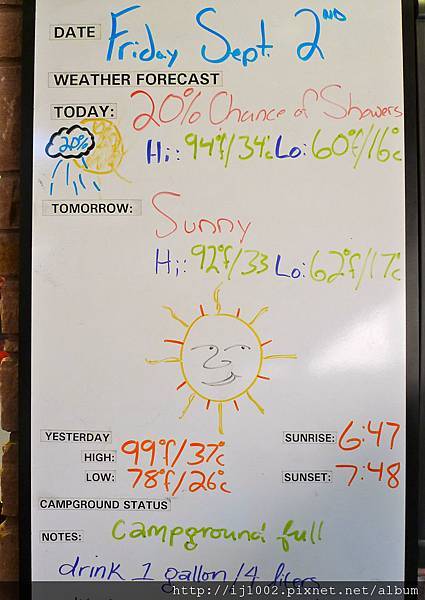 DATE Friday Sept. 2ND
WEATHER FORECAST
TODAY: 20% Chance of Showers
20%
Hi: 94°f/34°c Lo: 60°f/16°c
TOMORROW: Sunny
Hi: 92°f/33 Lo: 62°f/17°c
YESTERDAY
HIGH: 99°f/37°c
LOW: 78°f/26°c
SUNRISE: 6:47
SUNSET: 7:48
CAMPGROUND STATUS
NOTES: Campground full
drink 1 gallon/4 liters
http://ij1002.pixnet.net/album